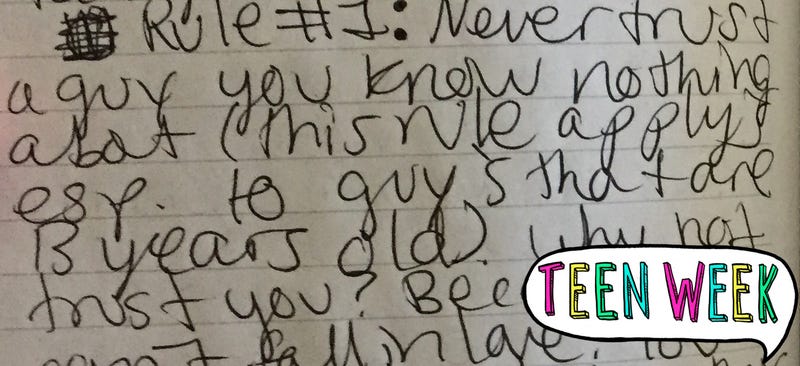 Rule #1: Never trust
a guy you know nothing
abot (this rule applys
esp. to guy's that are
13 years old). Why not
trust you? Bec
can't fall in love. You
TEEN WEEK